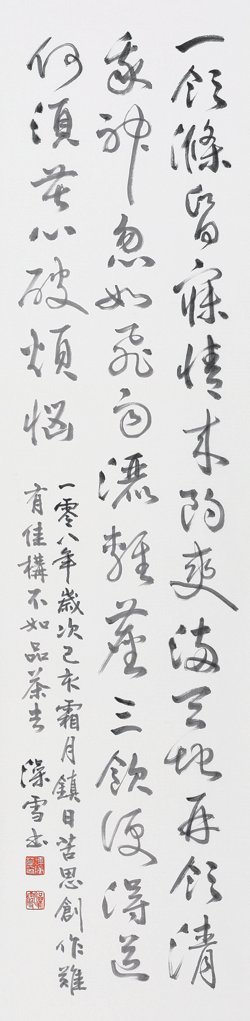 一飲滌昏寐情來朗爽滿天地再飲清
我神忽如飛雨灑輕塵三飲便得道
何須苦心破煩惱
一零八年歲次己亥霜月鎮日苦思創作難
有佳構不如品茶去 澡雪書